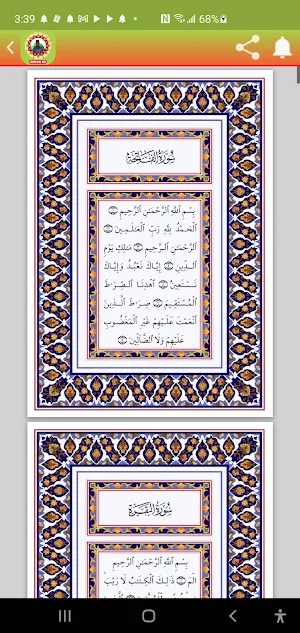 3:39
68%
سُورَةُ الْفَاتِحَةِ
بِسْمِ ٱللَّهِ ٱلرَّحْمَٰنِ ٱلرَّحِيمِ ۝١
ٱلْحَمْدُ لِلَّهِ رَبِّ ٱلْعَٰلَمِينَ ۝٢
ٱلرَّحْمَٰنِ ٱلرَّحِيمِ ۝٣ مَٰلِكِ يَوْمِ
ٱلدِّينِ ۝٤ إِيَّاكَ نَعْبُدُ وَإِيَّاكَ
نَسْتَعِينُ ۝٥ ٱهْدِنَا ٱلصِّرَٰطَ
ٱلْمُسْتَقِيمَ ۝٦ صِرَٰطَ ٱلَّذِينَ
أَنْعَمْتَ عَلَيْهِمْ غَيْرِ ٱلْمَغْضُوبِ
عَلَيْهِمْ وَلَا ٱلضَّآلِّينَ ۝٧
سُورَةُ الْبَقَرَةِ
بِسْمِ ٱللَّهِ ٱلرَّحْمَٰنِ ٱلرَّحِيمِ
الٓمٓ ۝١ ذَٰلِكَ ٱلْكِتَٰبُ لَا رَيْبَ